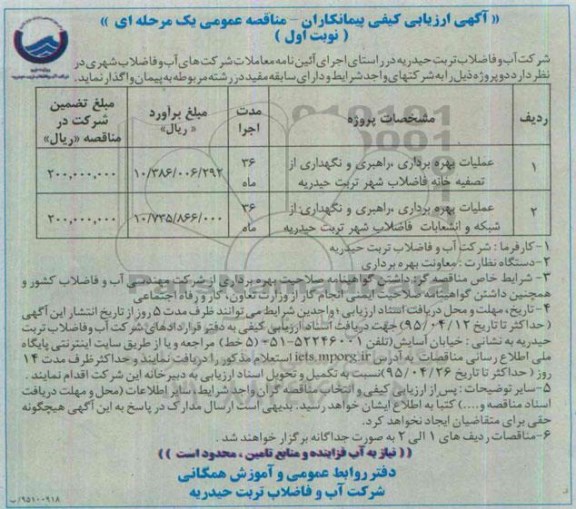 « آگهی ارزیابی کیفی پیمانکاران - مناقصه عمومی یک مرحله ای »
( نوبت اول )
شرکت آب و فاضلاب تربت حیدریه در راستای اجرای آئین نامه معاملات شرکت های آب و فاضلاب شهری در
نظر دارد دو پروژه ذیل را به شرکتهای واجد شرایط و دارای سابقه مفید در رشته مربوطه به پیمان واگذار نماید.
ردیف
مشخصات پروژه
مدت اجرا
مبلغ برآورد « ریال»
مبلغ تضمین شرکت در مناقصه «ریال»
۱
عملیات بهره برداری ،راهبری و نگهداری از تصفیه خانه فاضلاب شهر تربت حیدریه
۳۶ ماه
۱۰/۳۸۶/۰۰۶/۲۹۲
۲۰۰,۰۰۰,۰۰۰
۲
عملیات بهره برداری ،راهبری و نگهداری از شبکه و انشعابات فاضلاب شهر تربت حیدریه
۳۶ ماه
۱۰/۷۳۵/۸۶۶/۰۰۰
۲۰۰,۰۰۰,۰۰۰
۱-کارفرما : شرکت آب و فاضلاب تربت حیدریه
۲-دستگاه نظارت : معاونت بهره برداری
۳- شرایط خاص مناقصه گر: داشتن گواهینامه صلاحیت بهره برداری از شرکت مهندسی آب و فاضلاب کشور و
همچنین داشتن گواهینامه صلاحیت ایمنی انجام کار از وزارت تعاون، کار و رفاه اجتماعی
۴-تاریخ، مهلت و محل دریافت اسناد ارزیابی : واجدین شرایط می توانند ظرف مدت ۵ روز از تاریخ انتشار این آگهی
( حداکثر تا تاریخ ۹۵/۰۴/۱۲) جهت دریافت اسناد ارزیابی کیفی به دفتر قراردادهای شرکت آب و فاضلاب تربت
حیدریه به نشانی : خیابان آسایش (تلفن ۵۲۲۴۶۰۰۱-۰۵۱ (۵ خط) مراجعه و یا از طریق سایت اینترنتی پایگاه
ملی اطلاع رسانی مناقصات به آدرس iets.mporg.ir استعلام مذکور را دریافت نمایند و حداکثر ظرف مدت ۱۴
روز ( حداکثر تا تاریخ ۹۵/۰۴/۲۶)نسبت به تکمیل و تحویل اسناد ارزیابی به دبیرخانه این شرکت اقدام نمایند .
۵-سایر توضیحات : پس از ارزیابی کیفی و انتخاب مناقصه گران واجد شرایط ، سایر اطلاعات (محل و مهلت دریافت
اسناد مناقصه و....) کتبا به اطلاع ایشان خواهد رسید. بدیهی است ارسال مدارک در پاسخ به این آگهی هیچگونه
حقی برای متقاضیان ایجاد نخواهد کرد.
۶-مناقصات ردیف های ۱ الی ۲ به صورت جداگانه برگزار خواهند شد .
(( نیاز به آب فزاینده و منابع تامین ، محدود است ))
دفتر روابط عمومی و آموزش همگانی
شرکت آب و فاضلاب تربت حیدریه
۹۵۱۰۰۹۱۸/ب